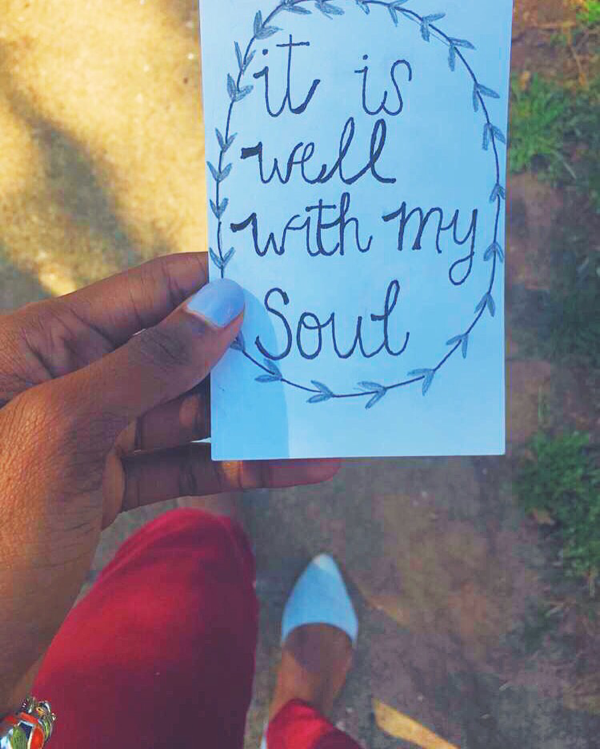 it is
well
with my
Soul